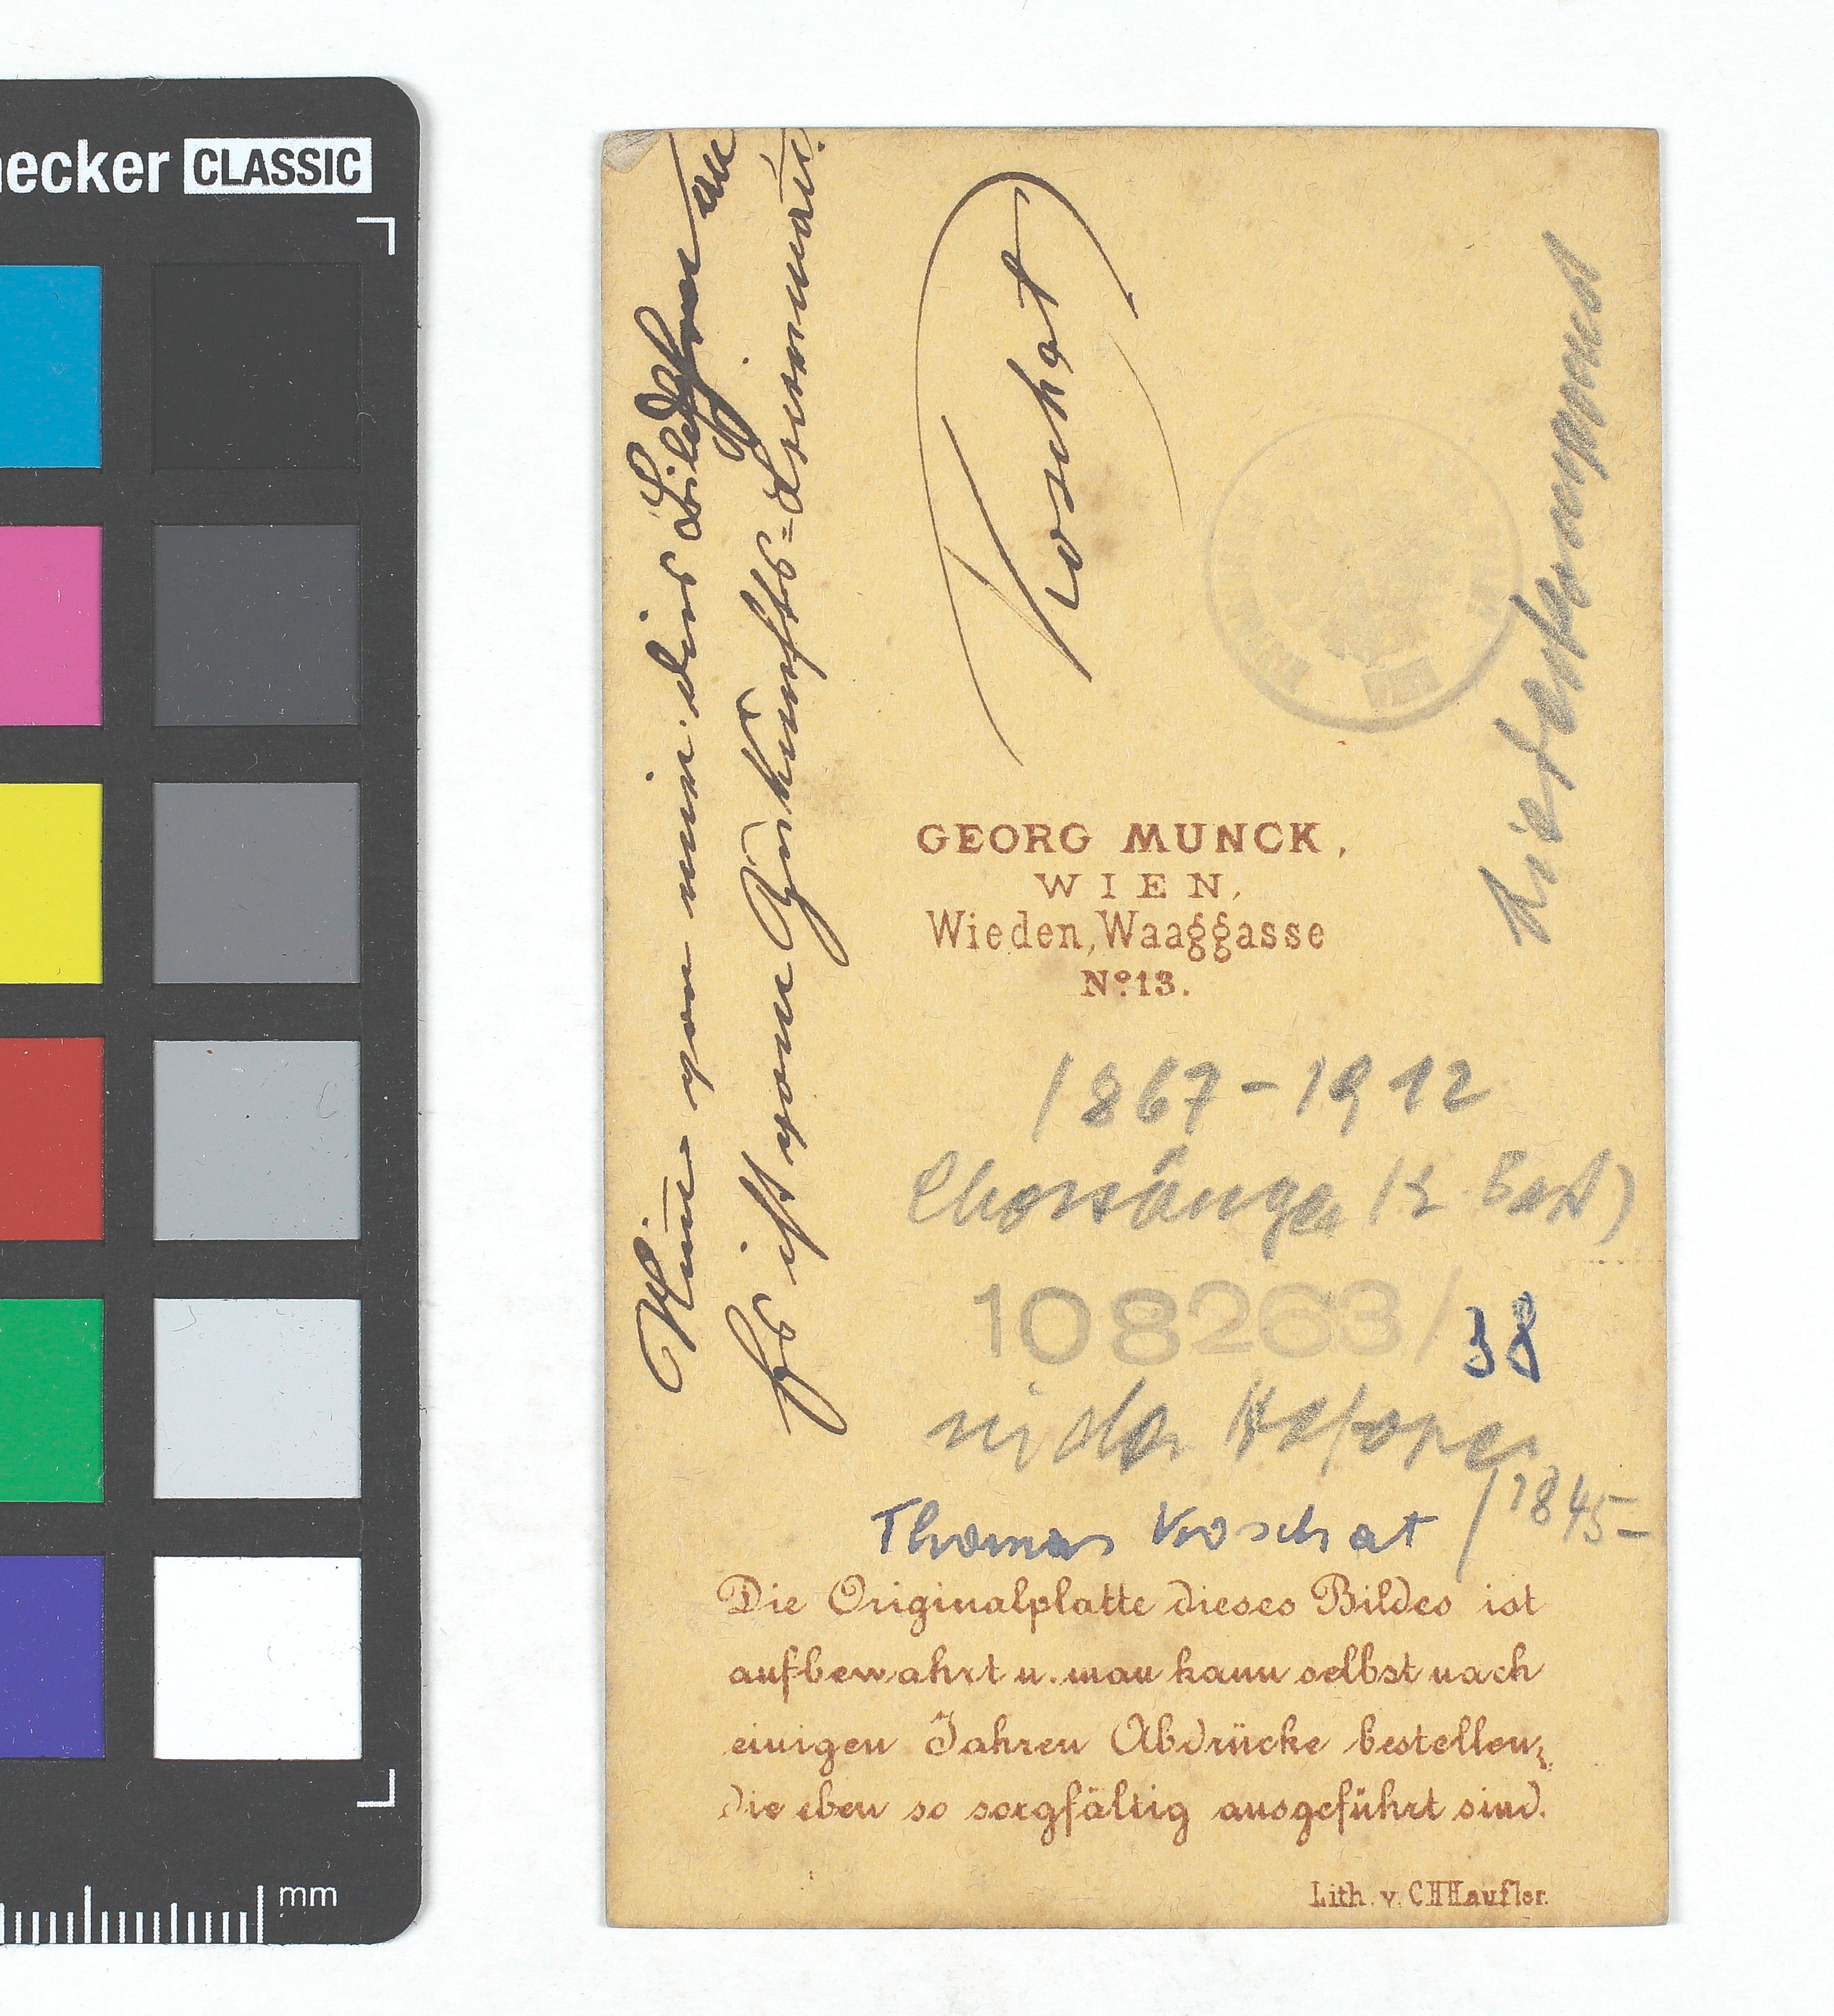 necker CLASSIC
Nimm von mir dies Bildchen an
Es ist vom Zukunfts=Brummbär.
Koschat
GEORG MUNCK,
WIEN,
Wieden, Waaggasse
No 13.
1867-1912
Chorsänger (2. Baß)
108263/38
in der Hofoper
Thomas Koschat /1845-
Die Originalplatte dieses Bildes ist
aufbewahrt u. man kann selbst nach
einigen Jahren Abdrücke bestellen,
die eben so sorgfältig ausgeführt sind.
Lith. v. C.H.Haufler.
mm